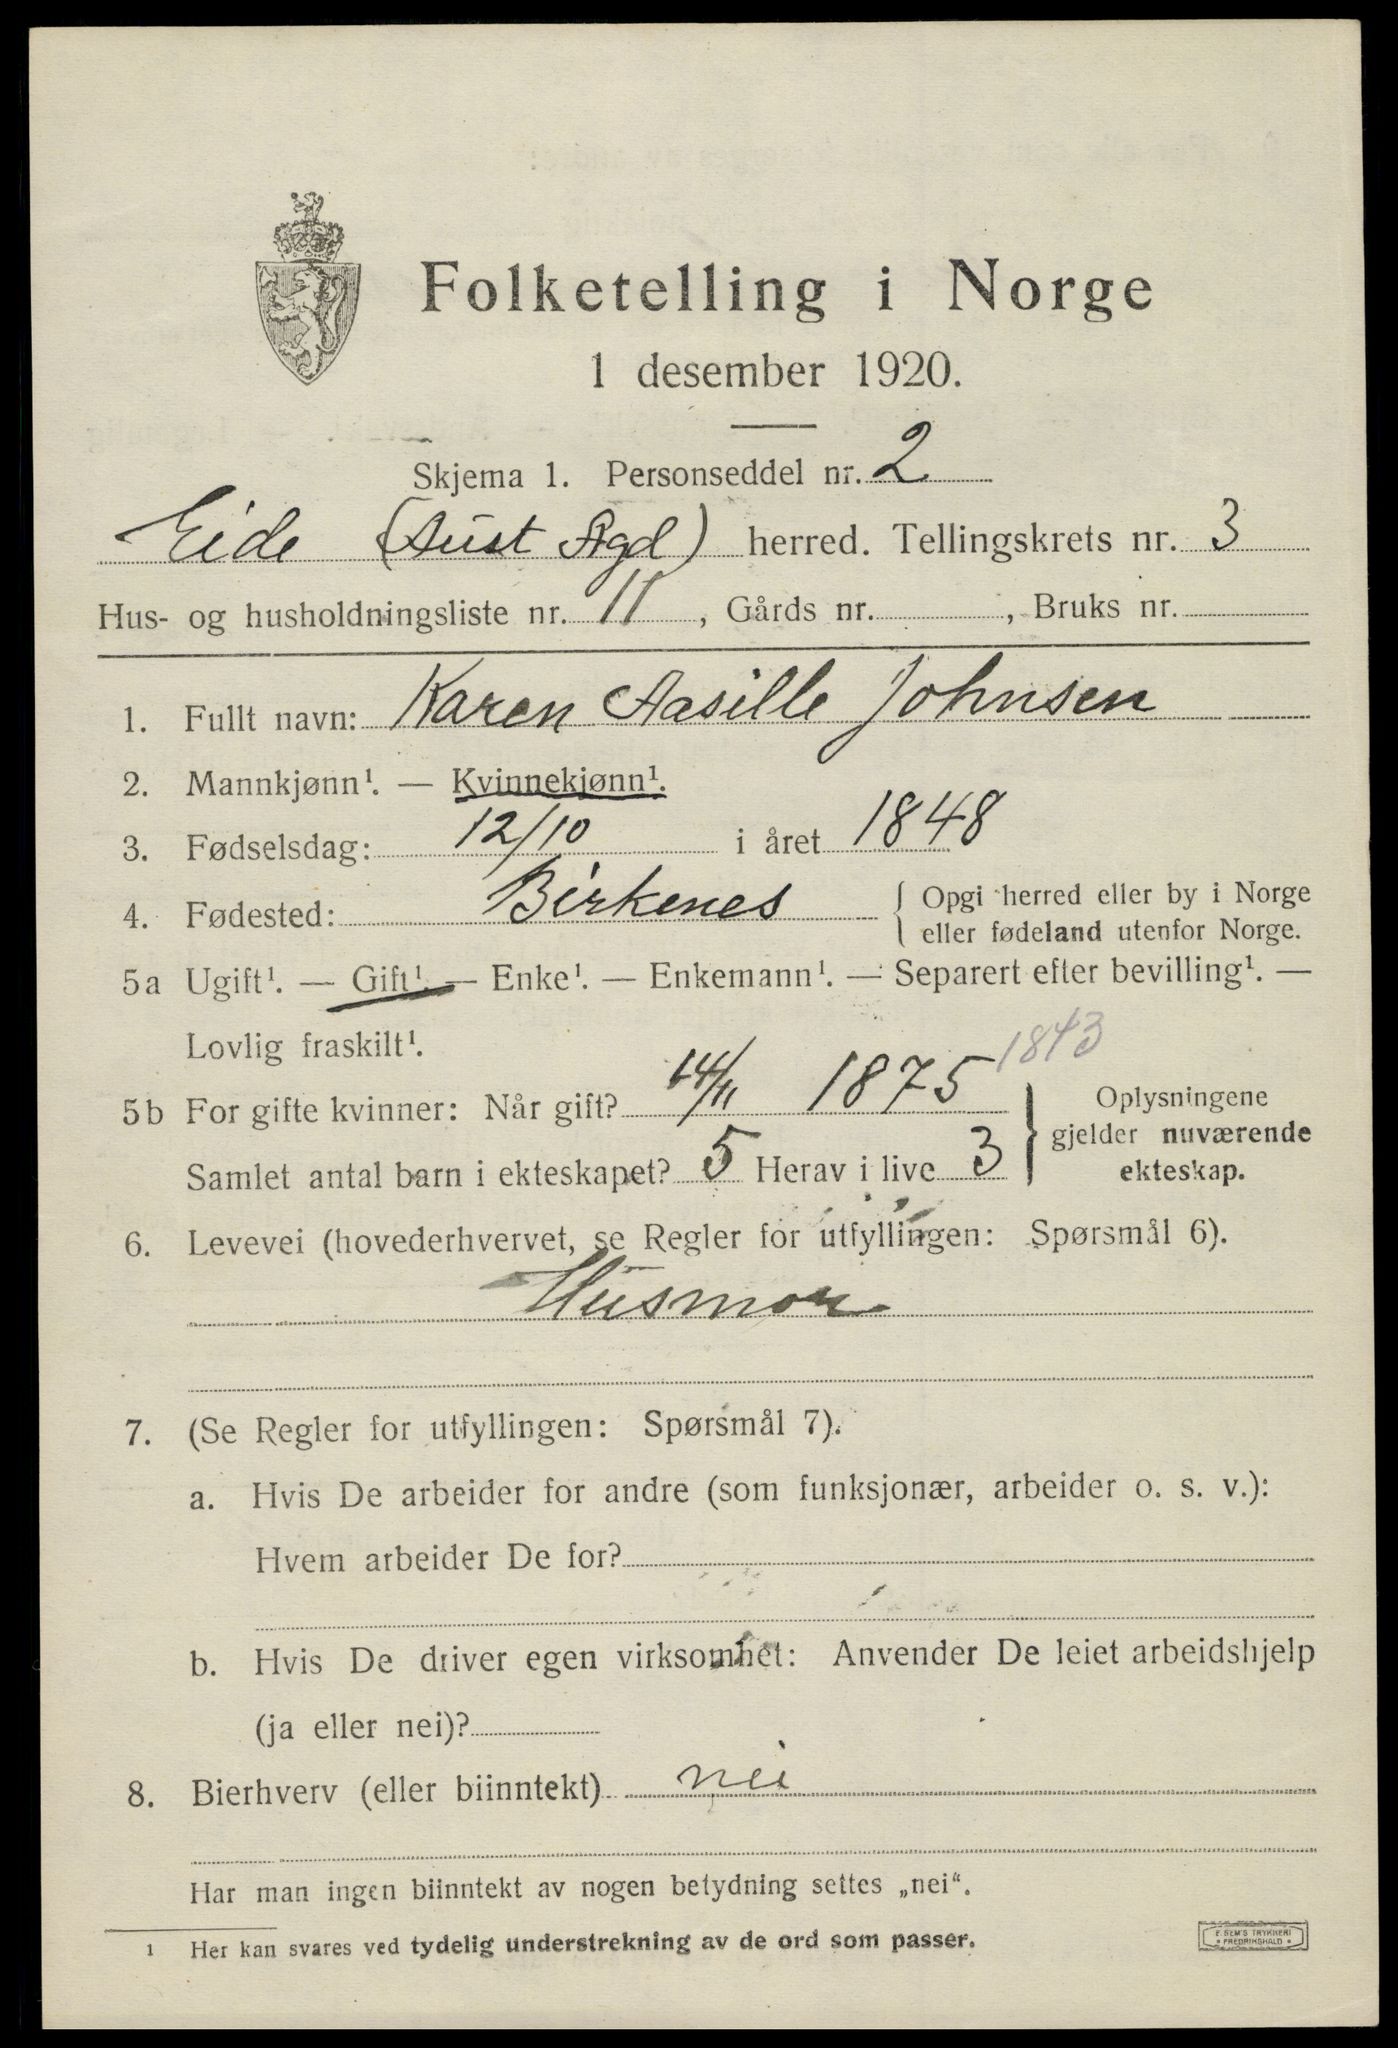 Folketelling i Norge
1 desember 1920.
Skjema 1. Personseddel nr. 2
Eide (Aust Agd) herred. Tellingskrets nr. 3
Hus- og husholdningsliste nr. 11, Gårds nr. , Bruks nr.
1. Fullt navn: Karen Aasille Johnsen
2. Mannkjønn¹. — Kvinnekjønn¹.
3. Fødselsdag: 12/10 i året 1848
4. Fødested: Birkenes { Opgi herred eller by i Norge
eller fødeland utenfor Norge.
5a Ugift¹. — Gift¹. — Enke¹. — Enkemann¹. — Separert efter bevilling¹. —
Lovlig fraskilt¹.
1843
5b For gifte kvinner: Når gift? 14/11 1875
Samlet antal barn i ekteskapet? 5 Herav i live 3
} Oplysningene
gjelder nuværende
ekteskap.
6. Levevei (hovederhvervet, se Regler for utfyllingen: Spørsmål 6).
Husmor
7. (Se Regler for utfyllingen: Spørsmål 7).
a. Hvis De arbeider for andre (som funksjonær, arbeider o. s. v.):
Hvem arbeider De for?
b. Hvis De driver egen virksomhet: Anvender De leiet arbeidshjelp
(ja eller nei)?
8. Bierhverv (eller biinntekt) nei
Har man ingen biinntekt av nogen betydning settes „nei“.
¹ Her kan svares ved tydelig understrekning av de ord som passer.
F. SEM'S TRYKKERI
* FREDRIKSHALD *